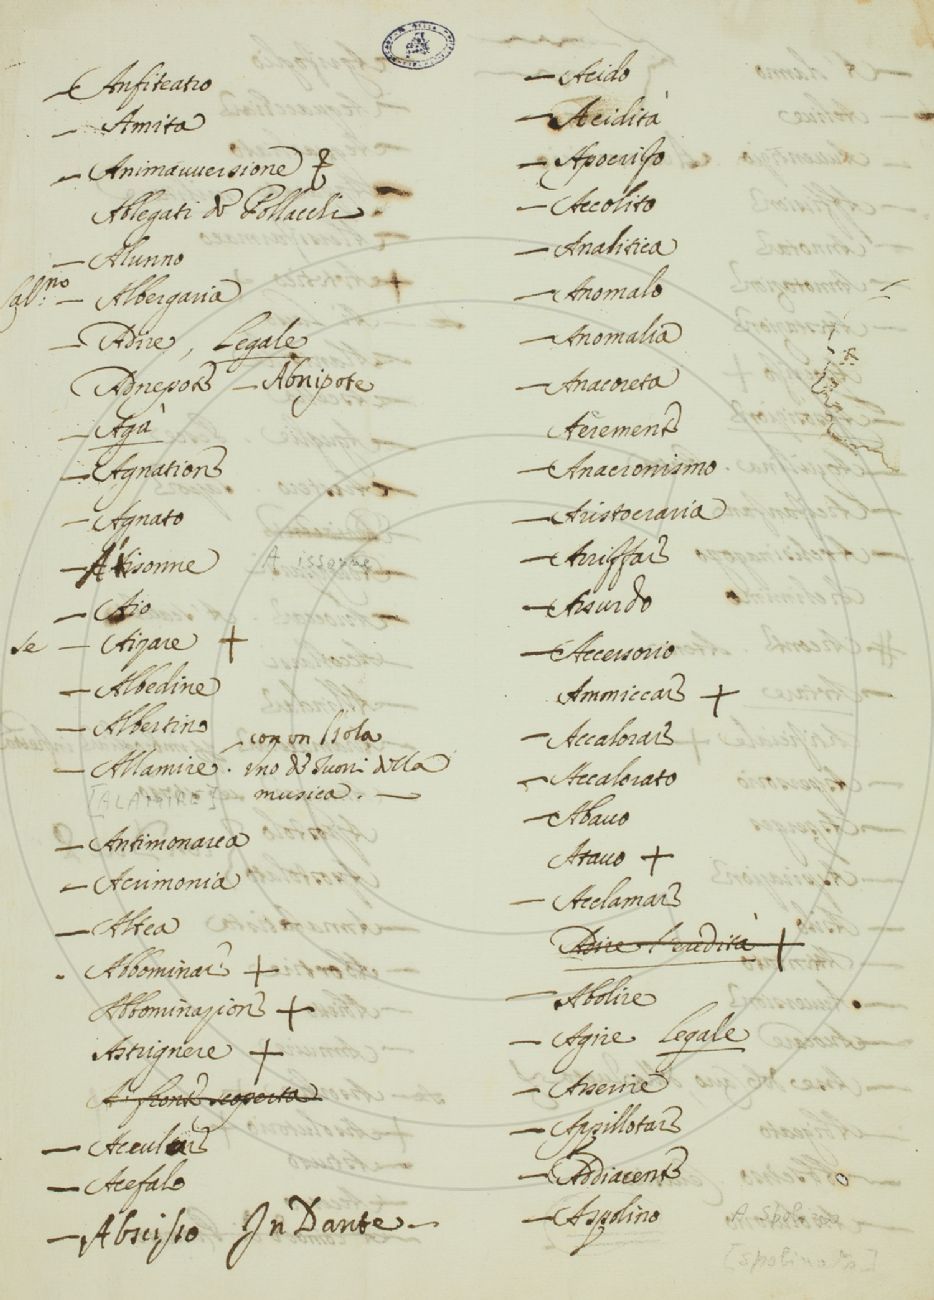 — Anfiteatro
— Amita
— Animauuersione
Ablegati de Pollacchi
— Alunno
— Albergaria
— Adire, Legale
Adnepote — Abnipote
— Agù
— Agnatione
— Agnato
— Aissonne A issonne
— Aio
se — Aizare +
— Albedine
— Albertino
— Allamire. con un Isola
uno de suoni della
[ALAMIRE] musica. —
— Antimonarca
— Acrimonia
— Altea
Abbominare +
Abbominazione +
Astrignere +
A fronte scoperta
— Accultare
— Acefalo
— Abscisso In Dante —
— Acido
— Acidità
— Apocrifo
— Accolito
— Analitica
— Anomalo
— Anomalia
— Anacoreta
Aeremente
— Anacronismo
— Aristocrazia
— Arriffare
— Assurdo
— Accessorio
Ammiccare +
— Accalorare
— Accalorato
— Abauo
Atauo +
— Acclamare
Adire l'eredità +
— Abolire
— Agire Legale
— Asseuire
— Appillotare
— Addiacente
— Aspolino A spolino
[spolino]